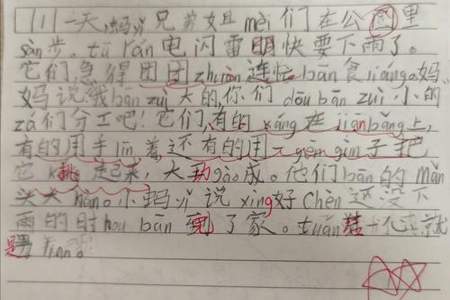 11 一天,蚂yi兄弟姐mèi们在公园里
sàn步。tū rán电闪雷明快要下雨了。
它们急得团团zhuàn连忙bān食 妈
妈说我bān zuì大的,你们dōu bān zuì小的
zá们分工吧!它们有的káng在jiān bǎng上,
有的用手lin着还有的用 子把
它挑起来,大功gào成。他们bān的mǎn
头大hàn。小蚂yi说xìng好chèn还没下
雨的时hou bān到了家。tuán结一 就
是 。